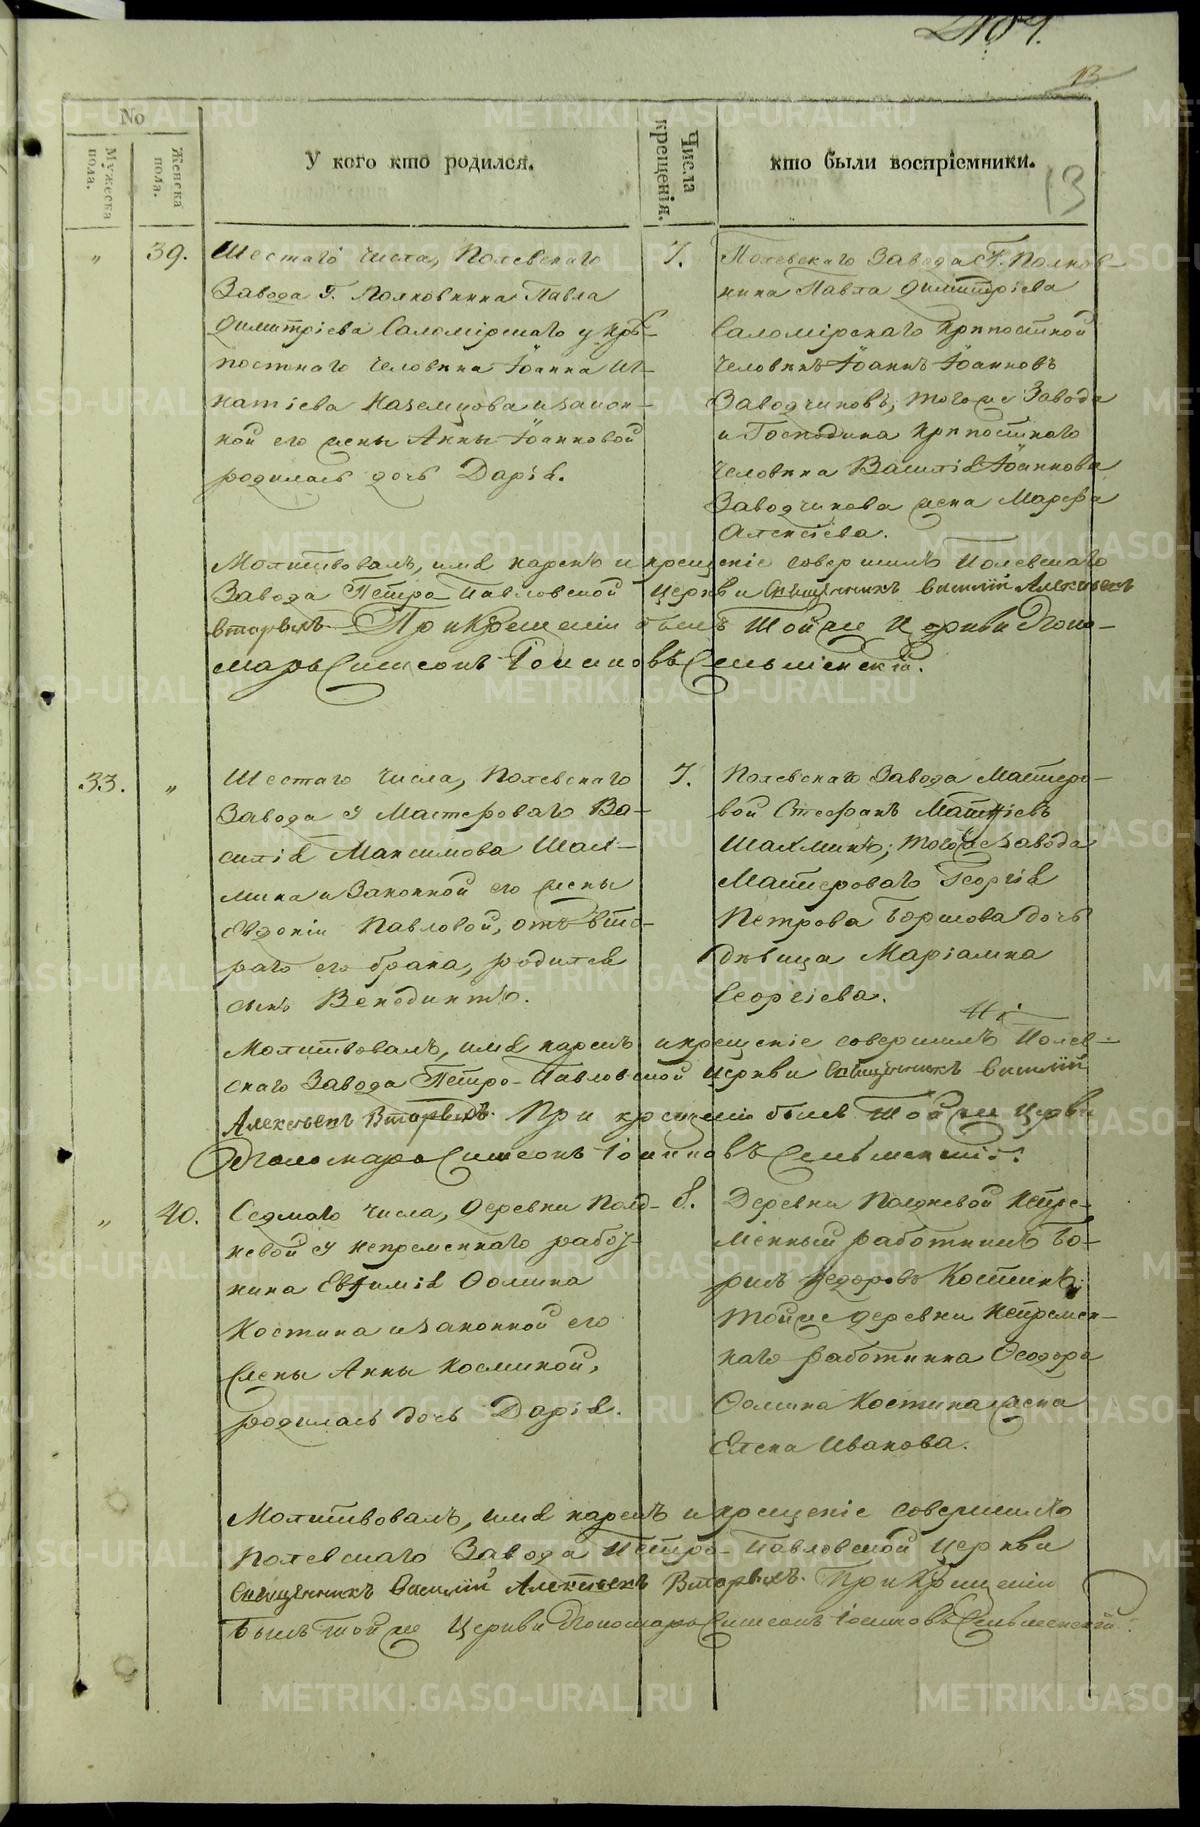 13
13
No
Мужеска пола.
Женска пола.
У кого кто родился.
Числа крещенія.
кто были воспріемники.
„ 39.
Шестаго числа, Полевскаго
Завода Г. Полковника Павла
Димитріева Саломірскаго у крѣ-
постнаго человѣка Іоанна Иг-
натіева Казенцова и закон-
ной его жены Анны Іоанновой
родилась дочь Дарія.
7.
Полевскаго Завода Г. Полков-
ника Павла Димитріева
Саломірскаго крѣпостной
человѣкъ Іоаннъ Іоанновъ
Заводчиковъ; тогоже Завода
и Господина крѣпостнаго
человѣка Василія Іоаннова
Заводчикова жена Марфа
Алексіева.
Молитвовалъ, имя нарекъ и крещеніе совершилъ Полевскаго
Завода Петро-Павловской церкви Священникъ Василій Алексѣевъ
Вторыхъ. При крещеніи былъ тойже Церкви Поно-
марь Симеонъ Іоанновъ
33. „
Шестаго числа, Полевскаго
Завода у Мастероваго Ва-
силія Максимова Шах-
мина и Законной его жены
Евдокіи Павловой, отъ вто-
раго его брака, родился
сынъ Венедиктъ.
7.
Полевскаго Завода Мастеро-
вой Стефанъ Матѳіевъ
Шахминъ; тогоже завода
Мастероваго Георгія
Петрова дочь
дѣвица Маріамна
Георгіева.
Молитвовалъ, имя нарекъ и крещеніе совершилъ Полев-
скаго Завода Петро-Павловской Церкви Священникъ Василій
Алексѣевъ Вторыхъ. При крещеніи былъ тойже Церкви
Пономарь Симеонъ Іоанновъ
„ 40.
Седмаго числа, Деревни Полд-
невой у непременнаго работ-
ника Евѳимія Ѳомина
Костина и законной его
жены Анны Козминой,
родилась дочь Дарія.
8.
Деревни Полдневой Непре-
менный работникъ Бо-
рисъ Ѳедоровъ Костинъ;
тойже деревни Непремен-
наго работника Ѳеодора
Ѳомина Костина жена
Елена Иванова.
Молитвовалъ, имя нарекъ и крещеніе совершилъ
Полевскаго Завода Петро-Павловской Церкви
Священникъ Василій Алексѣевъ Вторыхъ. При Крещеніи
былъ тойже Церкви Пономарь Симеонъ Іоанновъ
METRIKI.GASO-URAL.RU